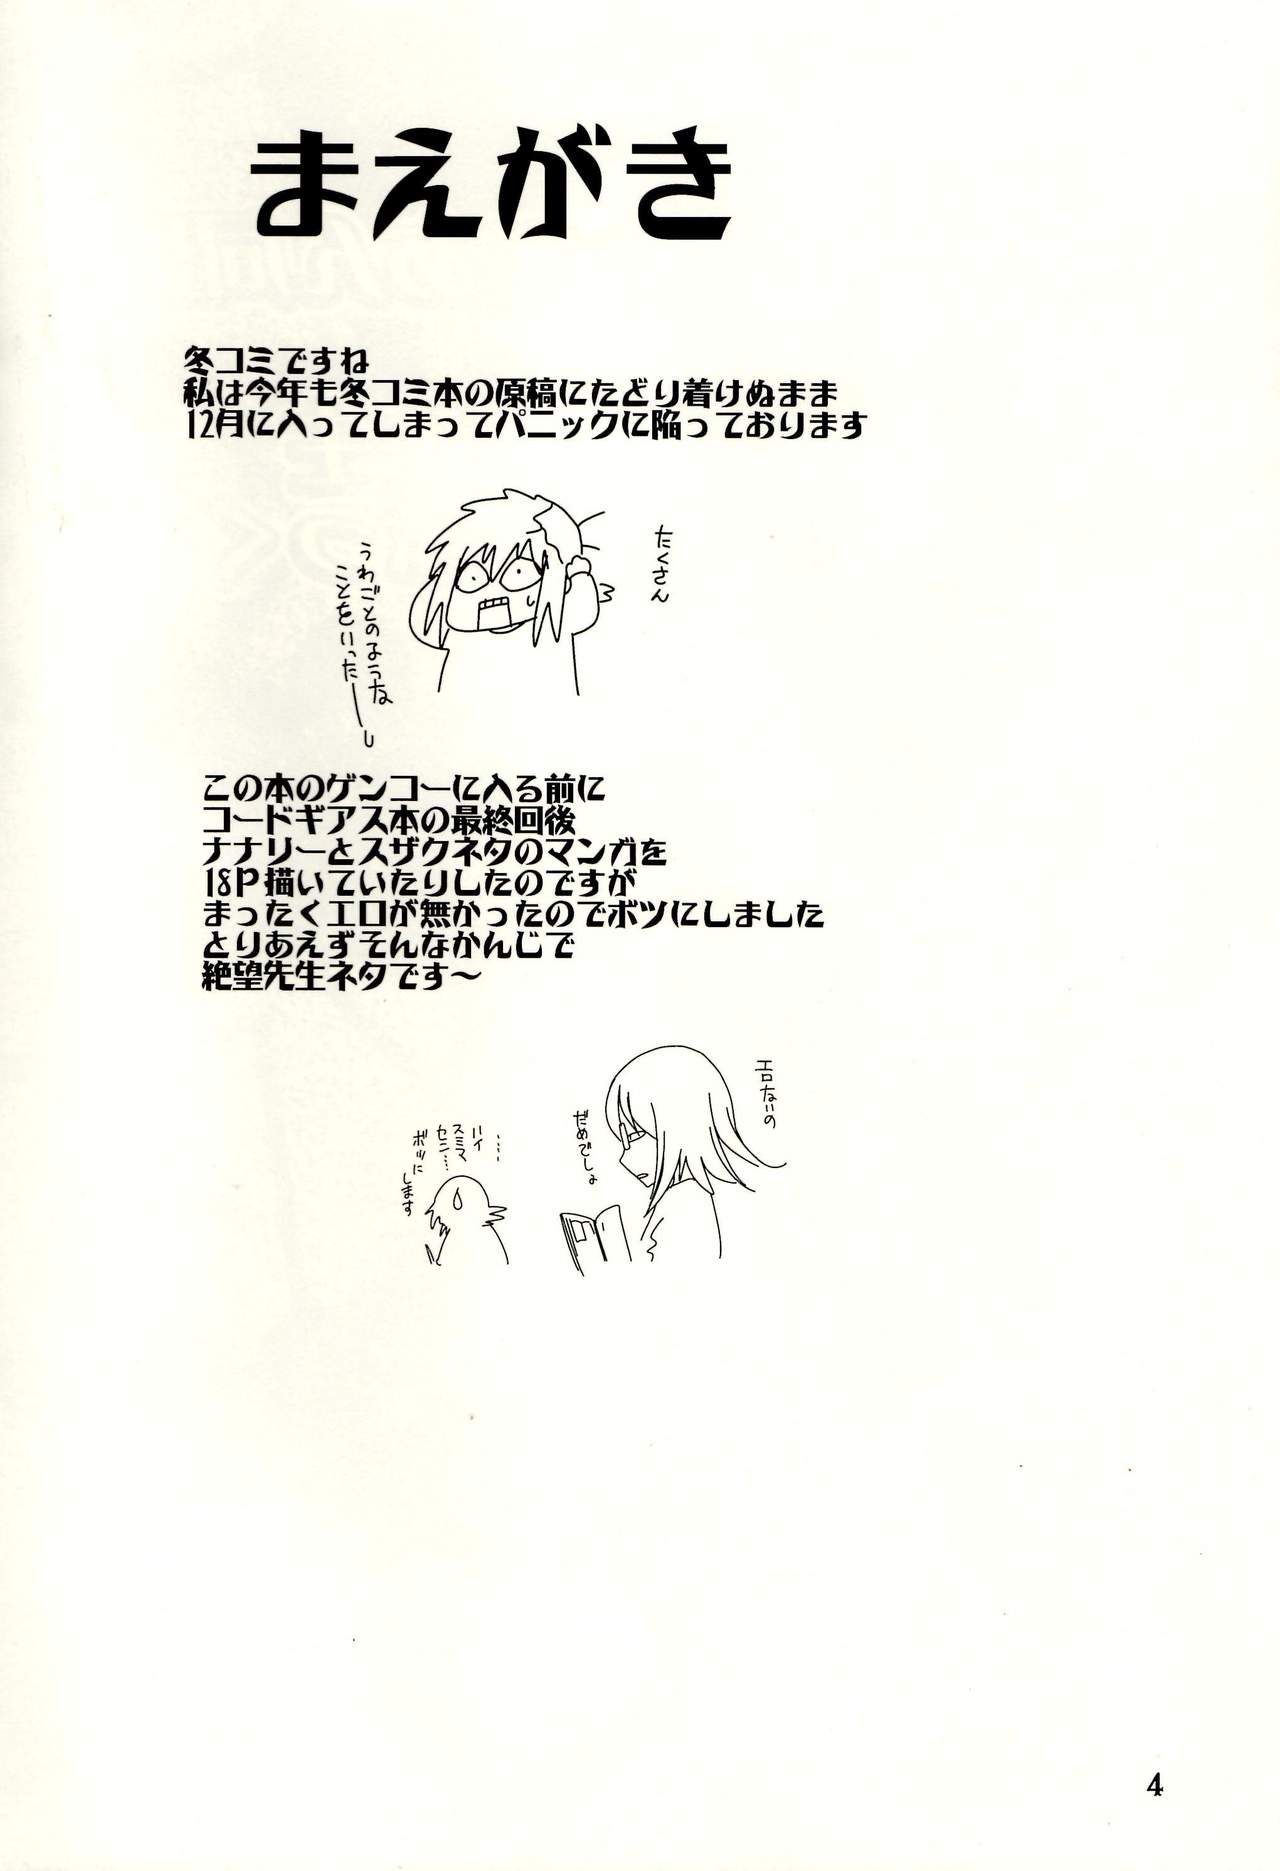 まえがき
冬コミですね
私は今年も冬コミ本の原稿にたどり着けぬまま
12月に入ってしまってパニックに陥っております
たくさん
うわごとのような
ことをいったーし
この本のゲンコーに入る前に
コードギアス本の最終回後
ナナリーとスザクネタのマンガを
18P描いていたりしたのですが
まったくエロが無かったのでボツにしました
とりあえずそんなかんじで
絶望先生ネタです～
エロないの
だめでしょ
……
ハイ
スミマ
セン…
ボツに
します
4